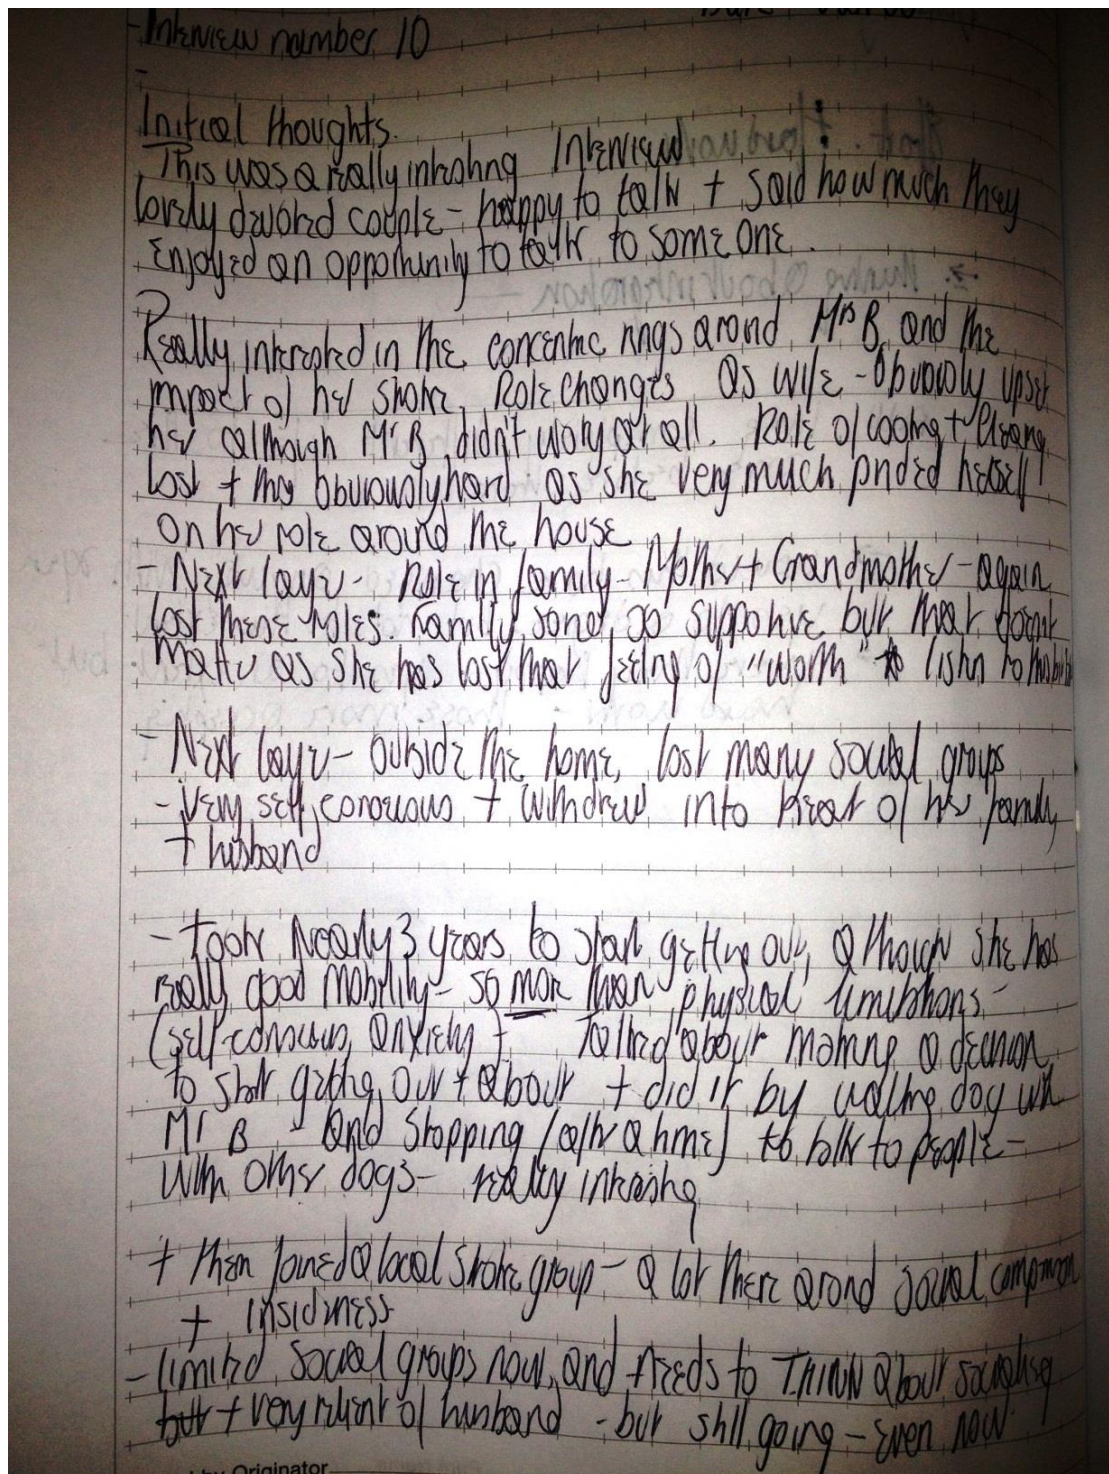 - Interview number 10
-
Initial thoughts.
This was a really interesting Interview
lovely devoted couple - happy to talk + said how much they
enjoyed an opportunity to talk to someone.
Really interested in the concentric rings around Mrs B, and the
impact of her stroke. Role changes as wife - obviously upset
her although Mr B didn't worry at all. Role of cooking + cleaning
lost + this obviously hard as she very much prided herself
on her role around the house
- Next layer - Role in family - Mother + Grandmother - again
lost these roles. Family sound so supportive but that doesn't
matter as she has lost that feeling of "worth" listen to this bit
- Next layer - outside the home, lost many social groups
- very self conscious + withdrew into of her family
+ husband
- took nearly 3 years to start getting out, although she has
really good mobility - so more than physical limitations -
(self-conscious, anxiety) + Talked about making a decision
to start getting out + about + did it by walking dog with
Mr B - and stopping (after a time) to talk to people -
with other dogs - really interesting
+ then joined a local stroke group - a lot there around social comparison
+ insiderness
- limited social groups now, and needs to THINK about socialising
but + very reliant of husband - but still going - even now
by Originator